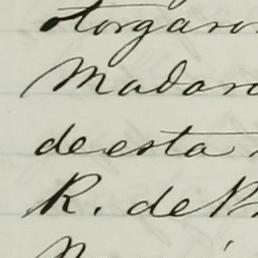 otorgaron
Madar
de esta
R. de P